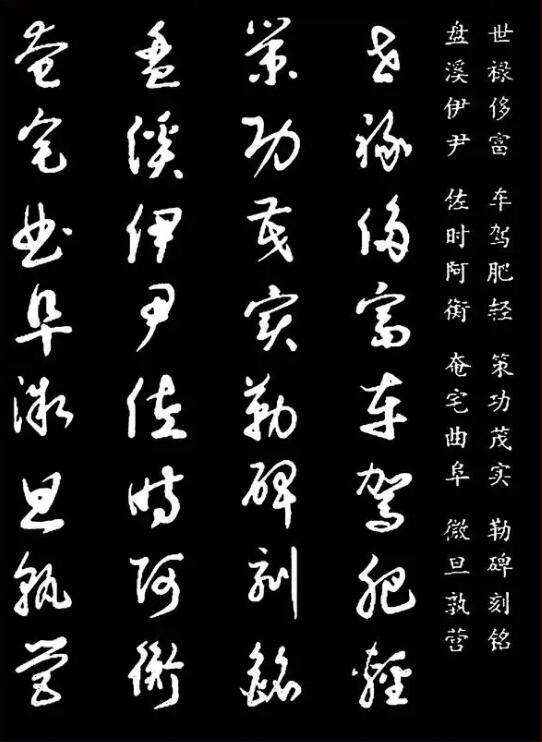 世禄侈富 车驾肥轻 策功茂实 勒碑刻铭
盘溪伊尹 佐时阿衡 奄宅曲阜 微旦孰营
世祿侈富車駕肥輕
策功茂實勒碑刻銘
盤溪伊尹佐時阿衡
奄宅曲阜微旦孰營